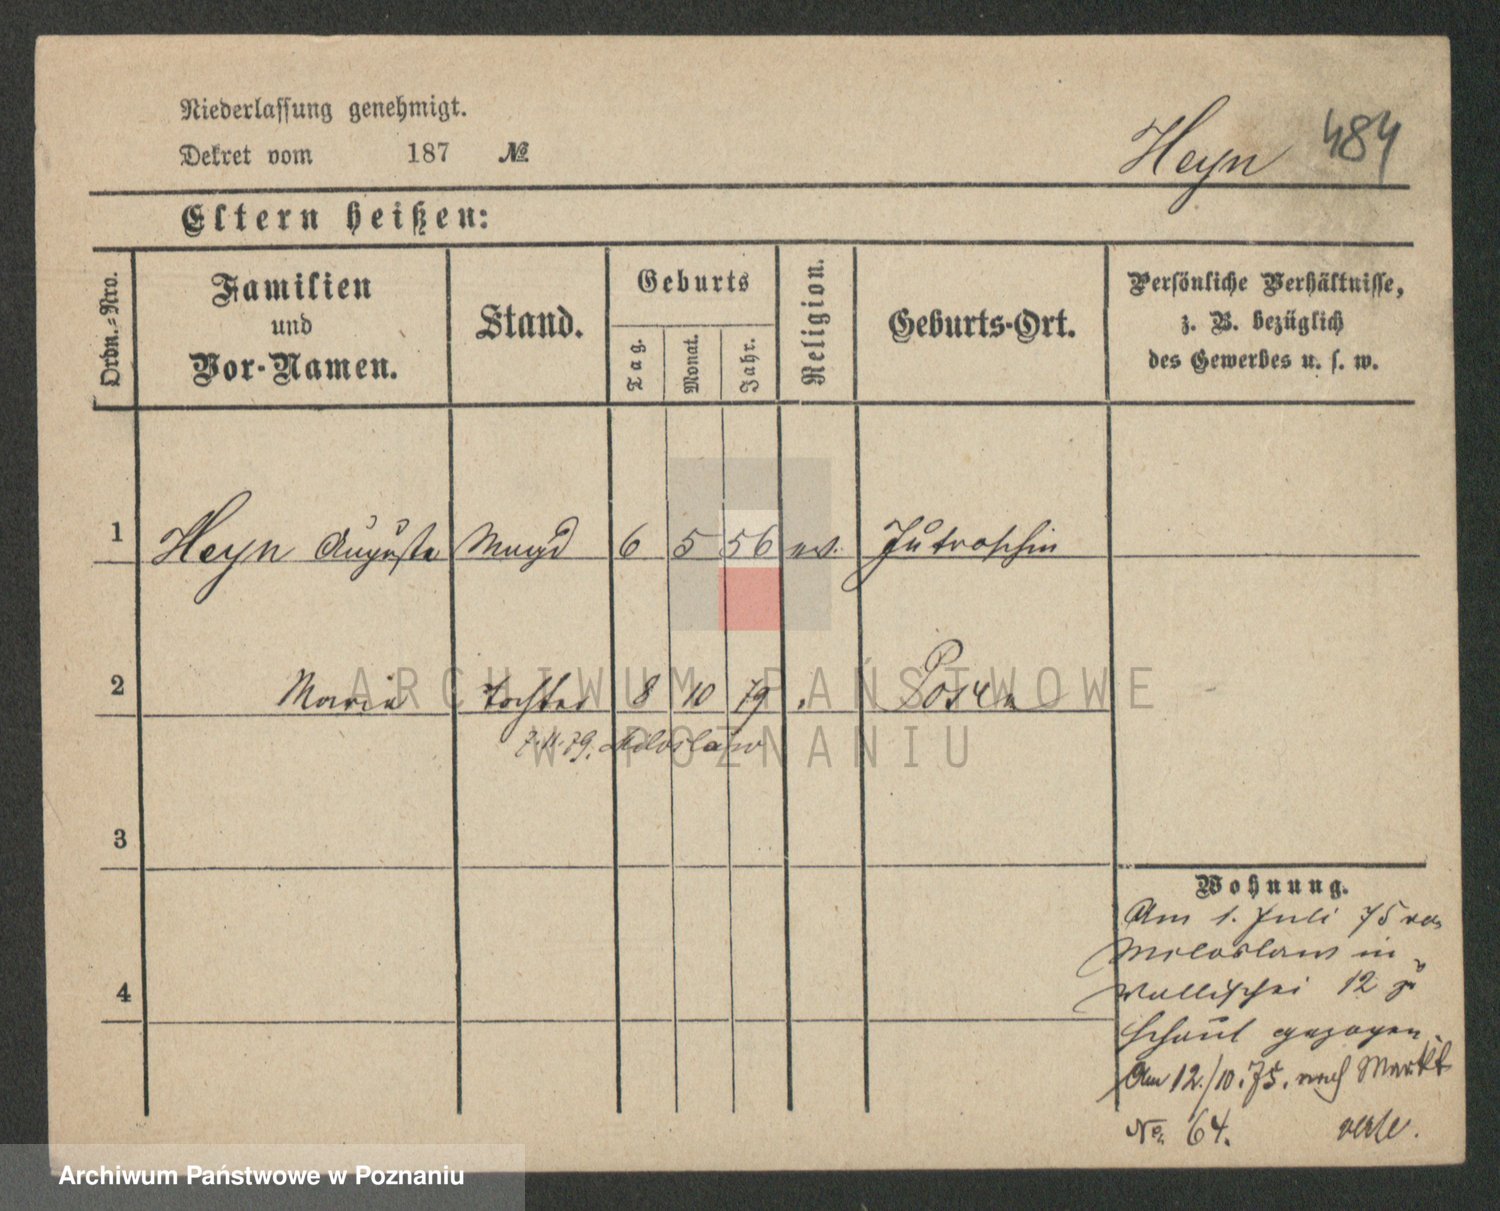 Niederlassung genehmigt.
Dekret vom 187 №
Heyn 484
Eltern heißen:
Ordn.-Nro.
Familien
und
Vor-Namen.
Stand.
Geburts
Tag.
Monat.
Jahr.
Religion.
Geburts-Ort.
Persönliche Verhältnisse,
z. B. bezüglich
des Gewerbes u. s. w.
1 Heyn Auguste Magd 6 5 56 ev. Jutroschin
2 Maria Tochter 8 10 79 Posen
7.11.79. Miloslaw
3
4
Wohnung.
Am 1. Juli 75 von
Miloslaw in
Wallischei 12 zu
gezogen.
Am 12./10.75. nach Markt
No. 64.
ARCHIWUM PAŃSTWOWE
W POZNANIU
Archiwum Państwowe w Poznaniu